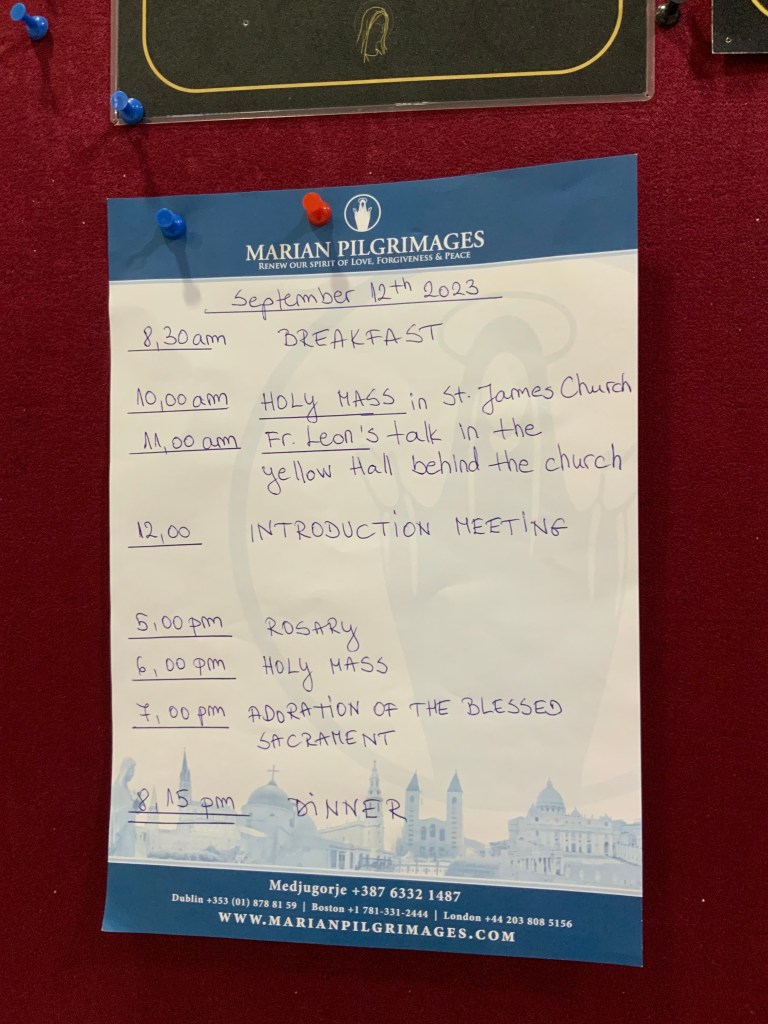 MARIAN PILGRIMAGES
RENEW OUR SPIRIT OF LOVE, FORGIVENESS & PEACE
September 12th 2023
8,30am BREAKFAST
10,00am HOLY MASS in St. James Church
11,00 am Fr. Leon's talk in the
yellow Hall behind the church
12,00 INTRODUCTION MEETING
5,00pm ROSARY
6,00 pm HOLY MASS
7,00 pm ADORATION OF THE BLESSED
SACRAMENT
8,15 pm DINNER
Medjugorje +387 6332 1487
Dublin +353 (01) 878 81 59 | Boston +1 781-331-2444 | London +44 203 808 5156
WWW.MARIANPILGRIMAGES.COM